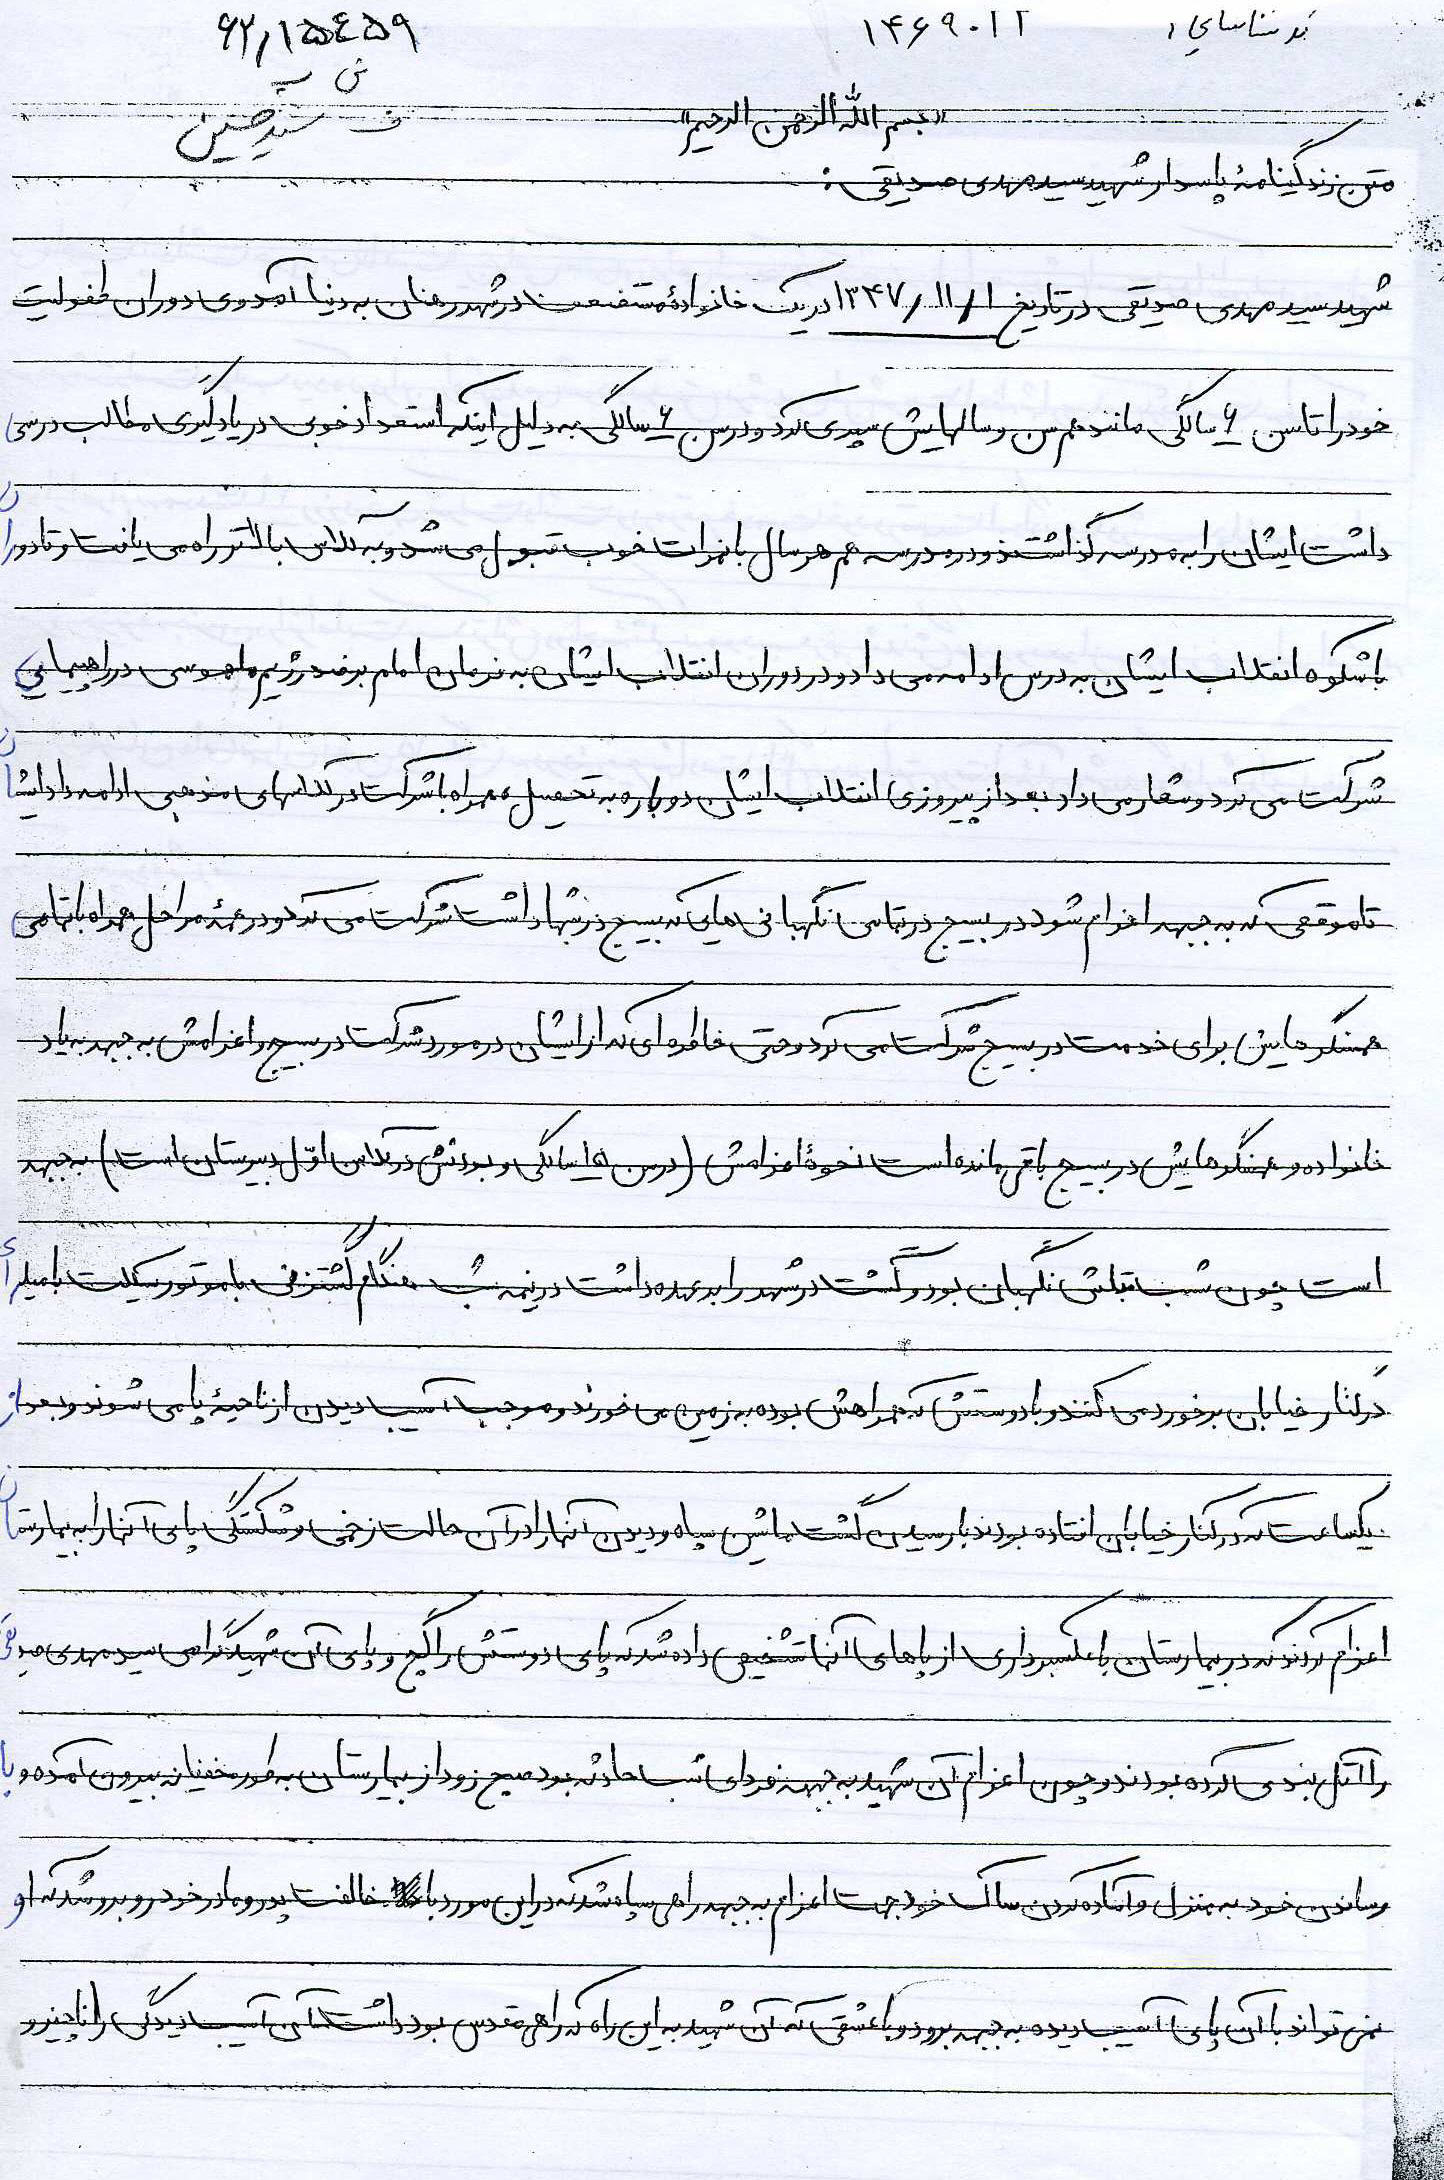 کد شناسایی ، ۱۴۶۹۰۱۲ ۶۲,۱۵۴۵۹
«بسم الله الرحمن الرحیم»
ف سید حسین
متن زندگینامهٔ پاسدار شهید سید مهدی صدیقی :
شهید سید مهدی صدیقی در تاریخ ۱۳۴۷/۱۱/۱ در یک خانوادهٔ مستضعف در شهر رهنان به دنیا آمد و وی دوران طفولیت
خود را تا سن ۶ سالگی مانند هم سن و سالهایش سپری کرد و در سن ۶ سالگی به دلیل اینکه استعداد خوبی در یادگیری مطالب درسی
داشت ایشان را به مدرسه گذاشتند و در مدرسه هم هر سال با نمرات خوب قبول می شد و به کلاس بالاتر راه می یافت و تا دوران
باشکوه انقلاب ایشان به درس ادامه می داد و در دوران انقلاب ایشان به فرمان امام بر ضد رژیم در راهپیمایی
شرکت می کرد و شعار می داد بعد از پیروزی انقلاب ایشان دوباره به تحصیل همراه با شرکت در کلاسهای مذهبی ادامه داد ایشان
تا موقعی که به جبهه اعزام شود در بسیج در تمامی نگهبانی هایی که بسیج در شبها داشت شرکت می کرد و در همهٔ مراحل همراه با تمامی
همسنگرهایش برای خدمت در بسیج شرکت می کرد و حتی خاطره ای که از ایشان در مورد شرکت در بسیج و اعزامش به جبهه به یاد
خانواده و همسنگرهایش در بسیج باقی مانده است نحوهٔ اعزامش (در سن ۱۵ سالگی و بودنش در کلاس اوّل دبیرستان است) به جبهه
است چون شب قبلش نگهبان بود و گشت در شهر را بر عهده داشت در نیمه شب هنگام گشتزنی با موتور سیکلت با میله ای
در کنار خیابان برخورد می کنند و با دوستش که همراهش بوده به زمین می خورند و موجب آسیب دیدن از ناحیهٔ پا می شوند و بعد از
یکساعت که در کنار خیابان افتاده بودند با رسیدن گشت ماشین سپاه و دیدن آنها را در آن حالت زخمی و شکستگی پای آنها را به بیمارستان
اعزام کردند که در بیمارستان با عکسبرداری از پاهای آنها تشخیص داده شد که پای دوستش را گچ و پای آن شهید گرامی سید مهدی صدیقی
را آتل بندی کرده بودند و چون اعزام آن شهید به جبهه فردای شب حادثه بود صبح زود از بیمارستان به طور مخفیانه بیرون آمده و با
رساندن خود به منزل و آماده کردن ساک خود جهت اعزام به جبهه راهی سپاه شد که در این مورد با مخالفت پدر و مادر خود روبرو شد که او
نمی تواند با آن پای آسیب دیده به جبهه برود و با عشقی که آن شهید به این راه که راهی مقدس بود داشت آن آسیب دیدگی را ناچیز و